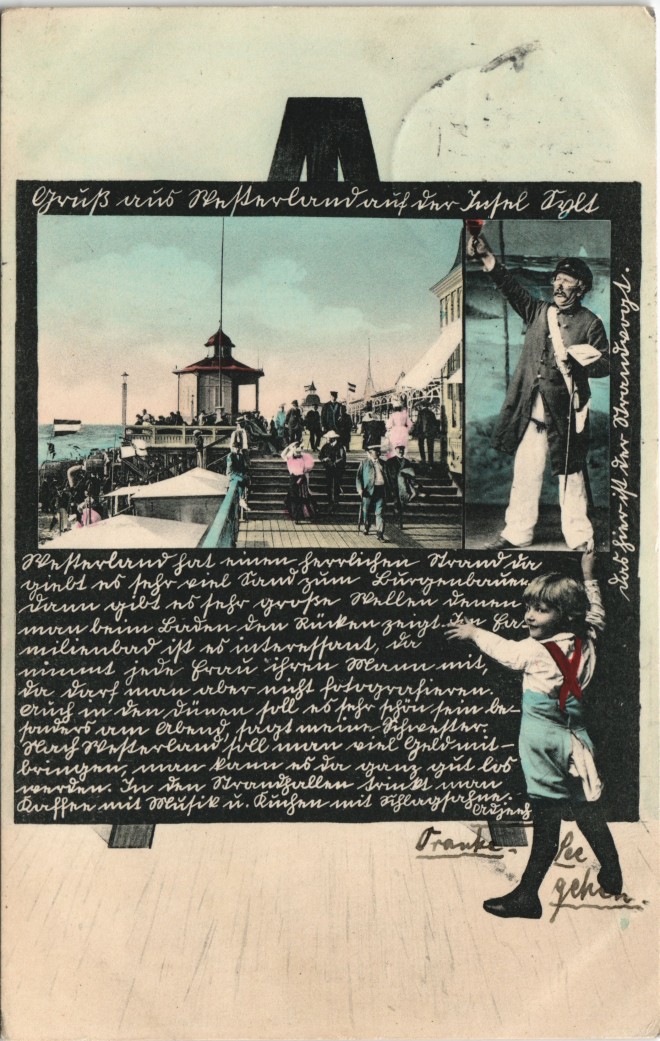 Gruß aus Westerland auf der Insel Sylt
das hier ist der Strandvogt.
Westerland hat einen herrlichen Strand da
giebt es sehr viel Sand zum Burgenbauen
dann gibt es sehr große Wellen denen
man beim Baden den Rücken zeigt. Im Fa-
milienbad ist es interessant, da
nimmt jede Frau ihren Mann mit,
da darf man aber nicht fotografieren.
Auch in den Dünen soll es sehr schön sein be-
sonders am Abend, sagt meine Schwester.
Nach Westerland soll man viel Geld mit-
bringen, man kann es da ganz gut los
werden. In den Strandhallen trinkt man
Kaffee mit Musik u. Kuchen mit Schlagsahne.
Adjeeh
See
gehen.